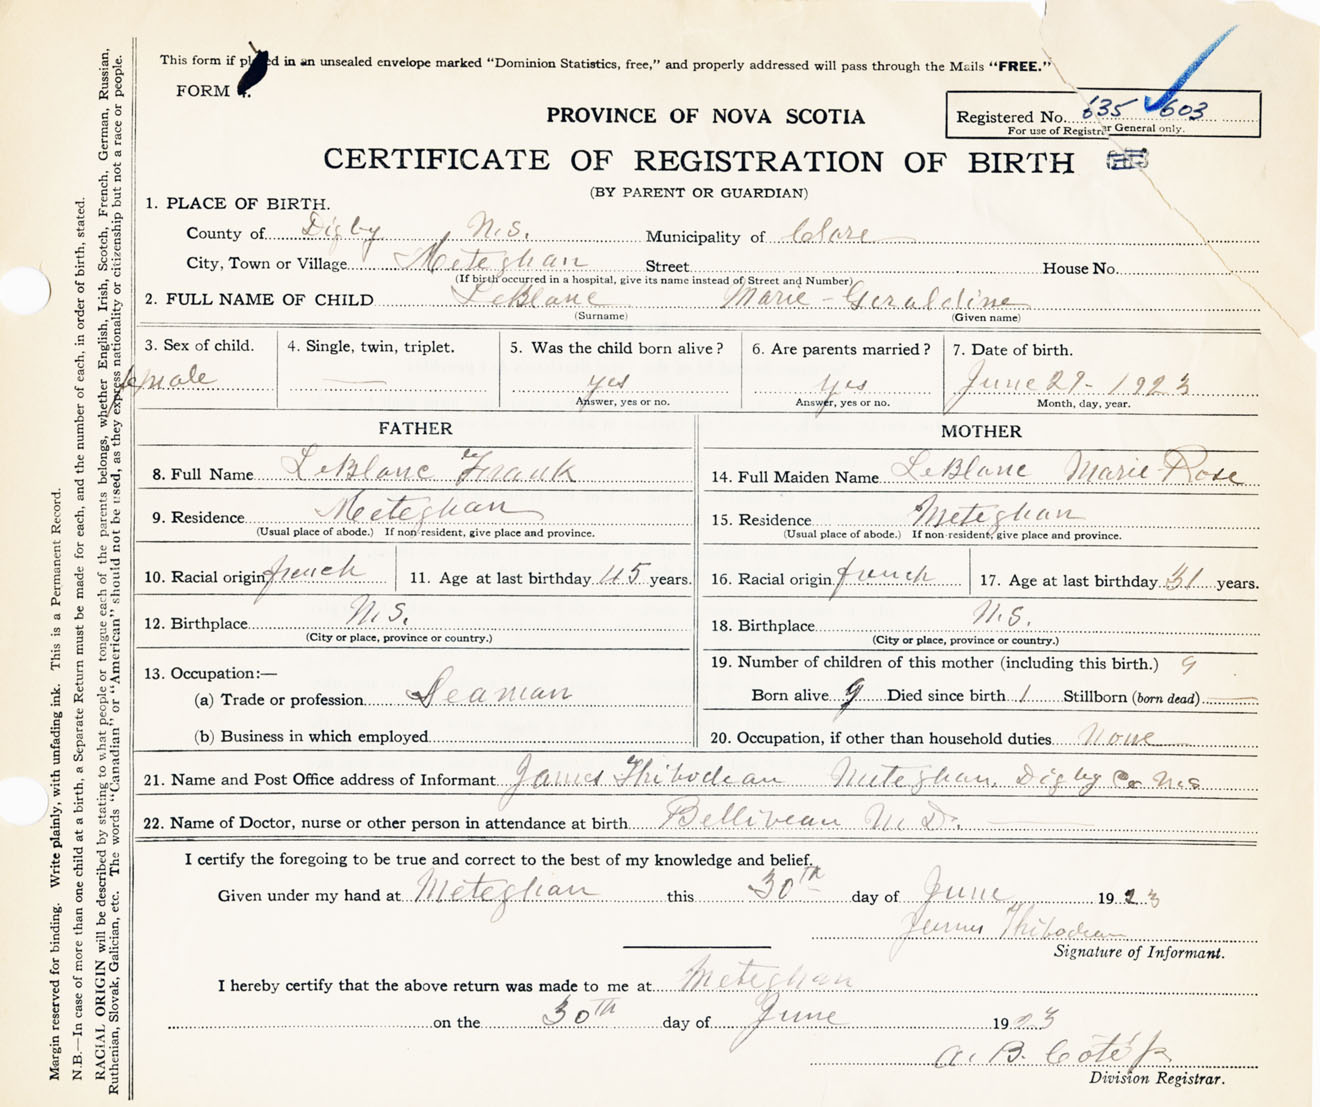 This form if placed in an unsealed envelope marked "Dominion Statistics, free," and properly addressed will pass through the Mails "FREE."
FORM
PROVINCE OF NOVA SCOTIA
Registered No. 635 603
For use of Registrar General only.
CERTIFICATE OF REGISTRATION OF BIRTH
(BY PARENT OR GUARDIAN)
1. PLACE OF BIRTH.
County of Digby N.S. Municipality of Clare
City, Town or Village Meteghan Street House No.
(If birth occurred in a hospital, give its name instead of Street and Number)
2. FULL NAME OF CHILD LeBlanc Marie-Geraldine
(Surname) (Given name)
3. Sex of child. 4. Single, twin, triplet. 5. Was the child born alive? 6. Are parents married? 7. Date of birth.
female — yes yes June 29-1923
Answer, yes or no. Answer, yes or no. Month, day, year.
FATHER MOTHER
8. Full Name LeBlanc Frank 14. Full Maiden Name LeBlanc Marie-Rose
9. Residence Meteghan 15. Residence Meteghan
(Usual place of abode.) If non-resident, give place and province. (Usual place of abode.) If non-resident, give place and province.
10. Racial origin french 11. Age at last birthday 45 years. 16. Racial origin french 17. Age at last birthday 31 years.
12. Birthplace N.S. 18. Birthplace N.S.
(City or place, province or country.) (City or place, province or country.)
13. Occupation:— 19. Number of children of this mother (including this birth.) 9
(a) Trade or profession Seaman Born alive 9 Died since birth 1 Stillborn (born dead) —
(b) Business in which employed 20. Occupation, if other than household duties None
21. Name and Post Office address of Informant James Thibodeau Meteghan, Digby Co N.S
22. Name of Doctor, nurse or other person in attendance at birth Belliveau M.D.
I certify the foregoing to be true and correct to the best of my knowledge and belief.
Given under my hand at Meteghan this 30th day of June 1923
James Thibodeau
Signature of Informant.
I hereby certify that the above return was made to me at Meteghan
on the 30th day of June 1923
A. B. Coté
Division Registrar.
Margin reserved for binding. Write plainly, with unfading ink. This is a Permanent Record.
N.B.—In case of more than one child at a birth, a Separate Return must be made for each, and the number of each, in order of birth, stated.
RACIAL ORIGIN will be described by stating to what people or tongue each of the parents belongs, whether English, Irish, Scotch, French, German, Russian,
Ruthenian, Slovak, Galician, etc. The words "Canadian" or "American" should not be used, as they express nationality or citizenship but not a race or people.